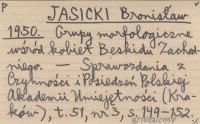 P
JASICKI Bronisław
1950. Grupy morfologiczne
wśród kobiet Beskidu Zachod-
niego. — Sprawozdania z
Czynności i Posiedzeń Polskiej
Akademii Umiejętności (Kra-
ków), t. 51, nr 3, s. 149-152.